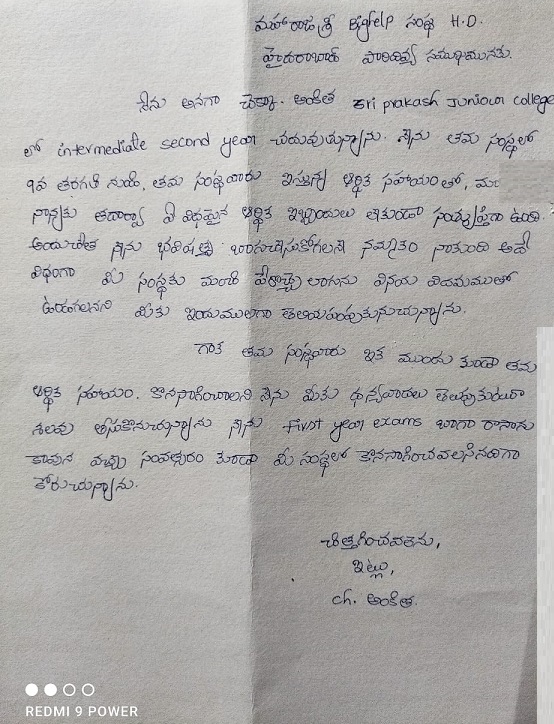 మహారాజశ్రీ Bighelp సంస్థ H.D.
హైదరాబాద్ పారిదివ్య సముఖమునకు.
నేను అనగా చెక్కా. అంకిత Sri prakash Junior college
లో intermediate second year చదువుతున్నాను. నేను తమ సంస్థలో
9వ తరగతి నుండి, తమ సంస్థవారు ఇస్తున్న ఆర్థిక సహాయంతో, మా
నాన్నకు తదార్వా ఏ విధమైన ఆర్థిక ఇబ్బందులు లేకుండా సంతృప్తిగా ఉంది.
అందుచేత నేను భవిష్యత్తు బాగుచేసుకోగలనే నమ్మకం నాకుంది అదే
విధంగా మీ సంస్థకు మంచి పేరొచ్చే లాగును వినయ విధేయముతో
ఉండగలనని మీకు ఇందుమూలగా తెలియపరుచుకొనుచున్నాను.
గాక తమ సంస్థవారు ఇక ముందు కూడా తమ
ఆర్థిక సహాయం. కొనసాగించాలని నేను మీకు ధన్యవాదలు తెలుపుకుంటూ
శలవు తీసుకొనుచున్నాను నేను first year exams బాగా రాసాను
కావున వచ్చే సంవత్సరం కూడా మీ సంస్థలో కొనసాగించవలసినదిగా
కోరుచున్నాను.
చిత్తగించవలెను,
ఇట్లు,
ch. అంకిత.
REDMI 9 POWER